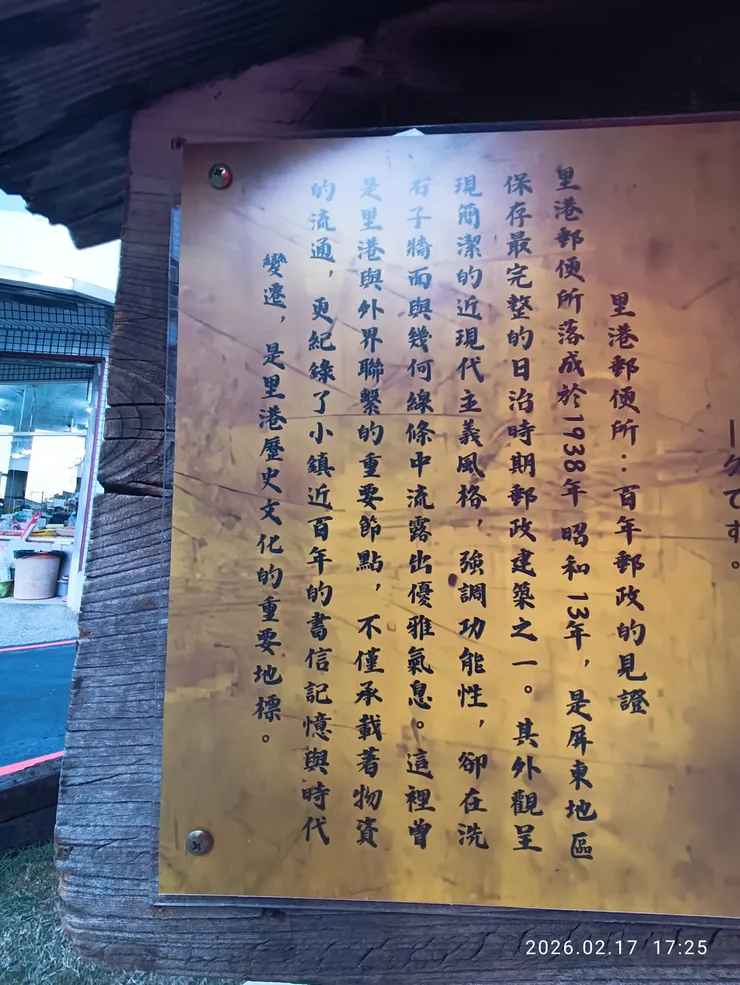 一つです。
里港郵便所：百年郵政的見證
里港郵便所落成於1938年 昭和 13年，是屏東地區
保存最完整的日治時期郵政建築之一。其外觀呈
現簡潔的近現代主義風格，強調功能性，卻在洗
石子牆面與幾何線條中流露出優雅氣息。這裡曾
是里港與外界聯繫的重要節點，不僅承載著物資
的流通，更紀錄了小鎮近百年的書信記憶與時代
變遷，是里港歷史文化的重要地標。
2026.02.17 17:25